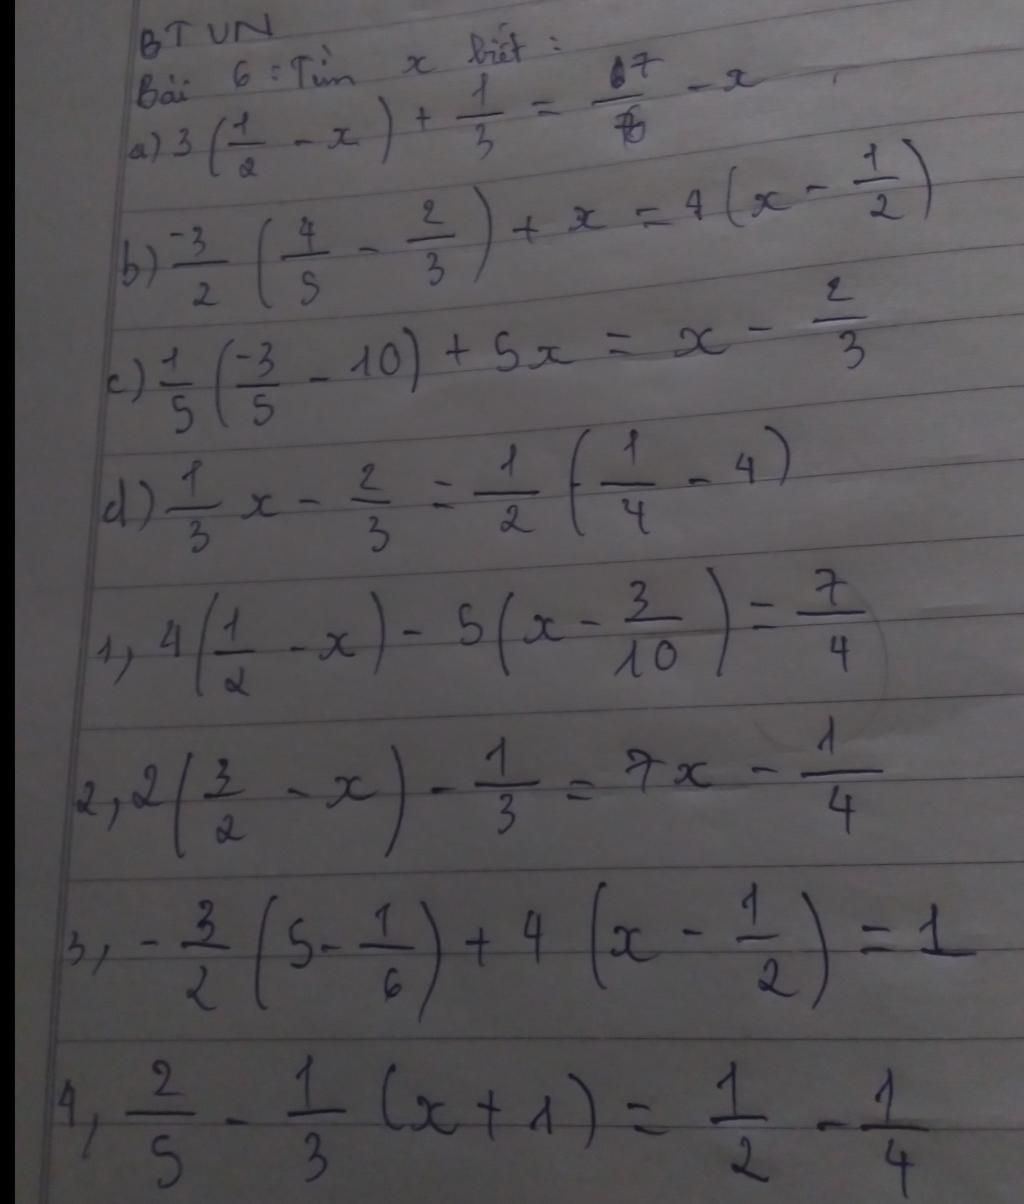 BTVN
Bài 6: Tìm x biết:
a) 3(1/2 - x) + 1/3 = 7/6 - x
b) -3/2 (4/5 - 2/3) + x = 4(x - 1/2)
c) 1/5 (-3/5 - 10) + 5x = x - 2/3
d) 1/3 x - 2/3 = 1/2 (1/4 - 4)
1, 4(1/2 - x) - 5(x - 3/10) = 7/4
2, 2(3/2 - x) - 1/3 = 7x - 1/4
3, -3/2 (5 - 1/6) + 4 (x - 1/2) = 1
4, 2/5 - 1/3 (x + 1) = 1/2 - 1/4